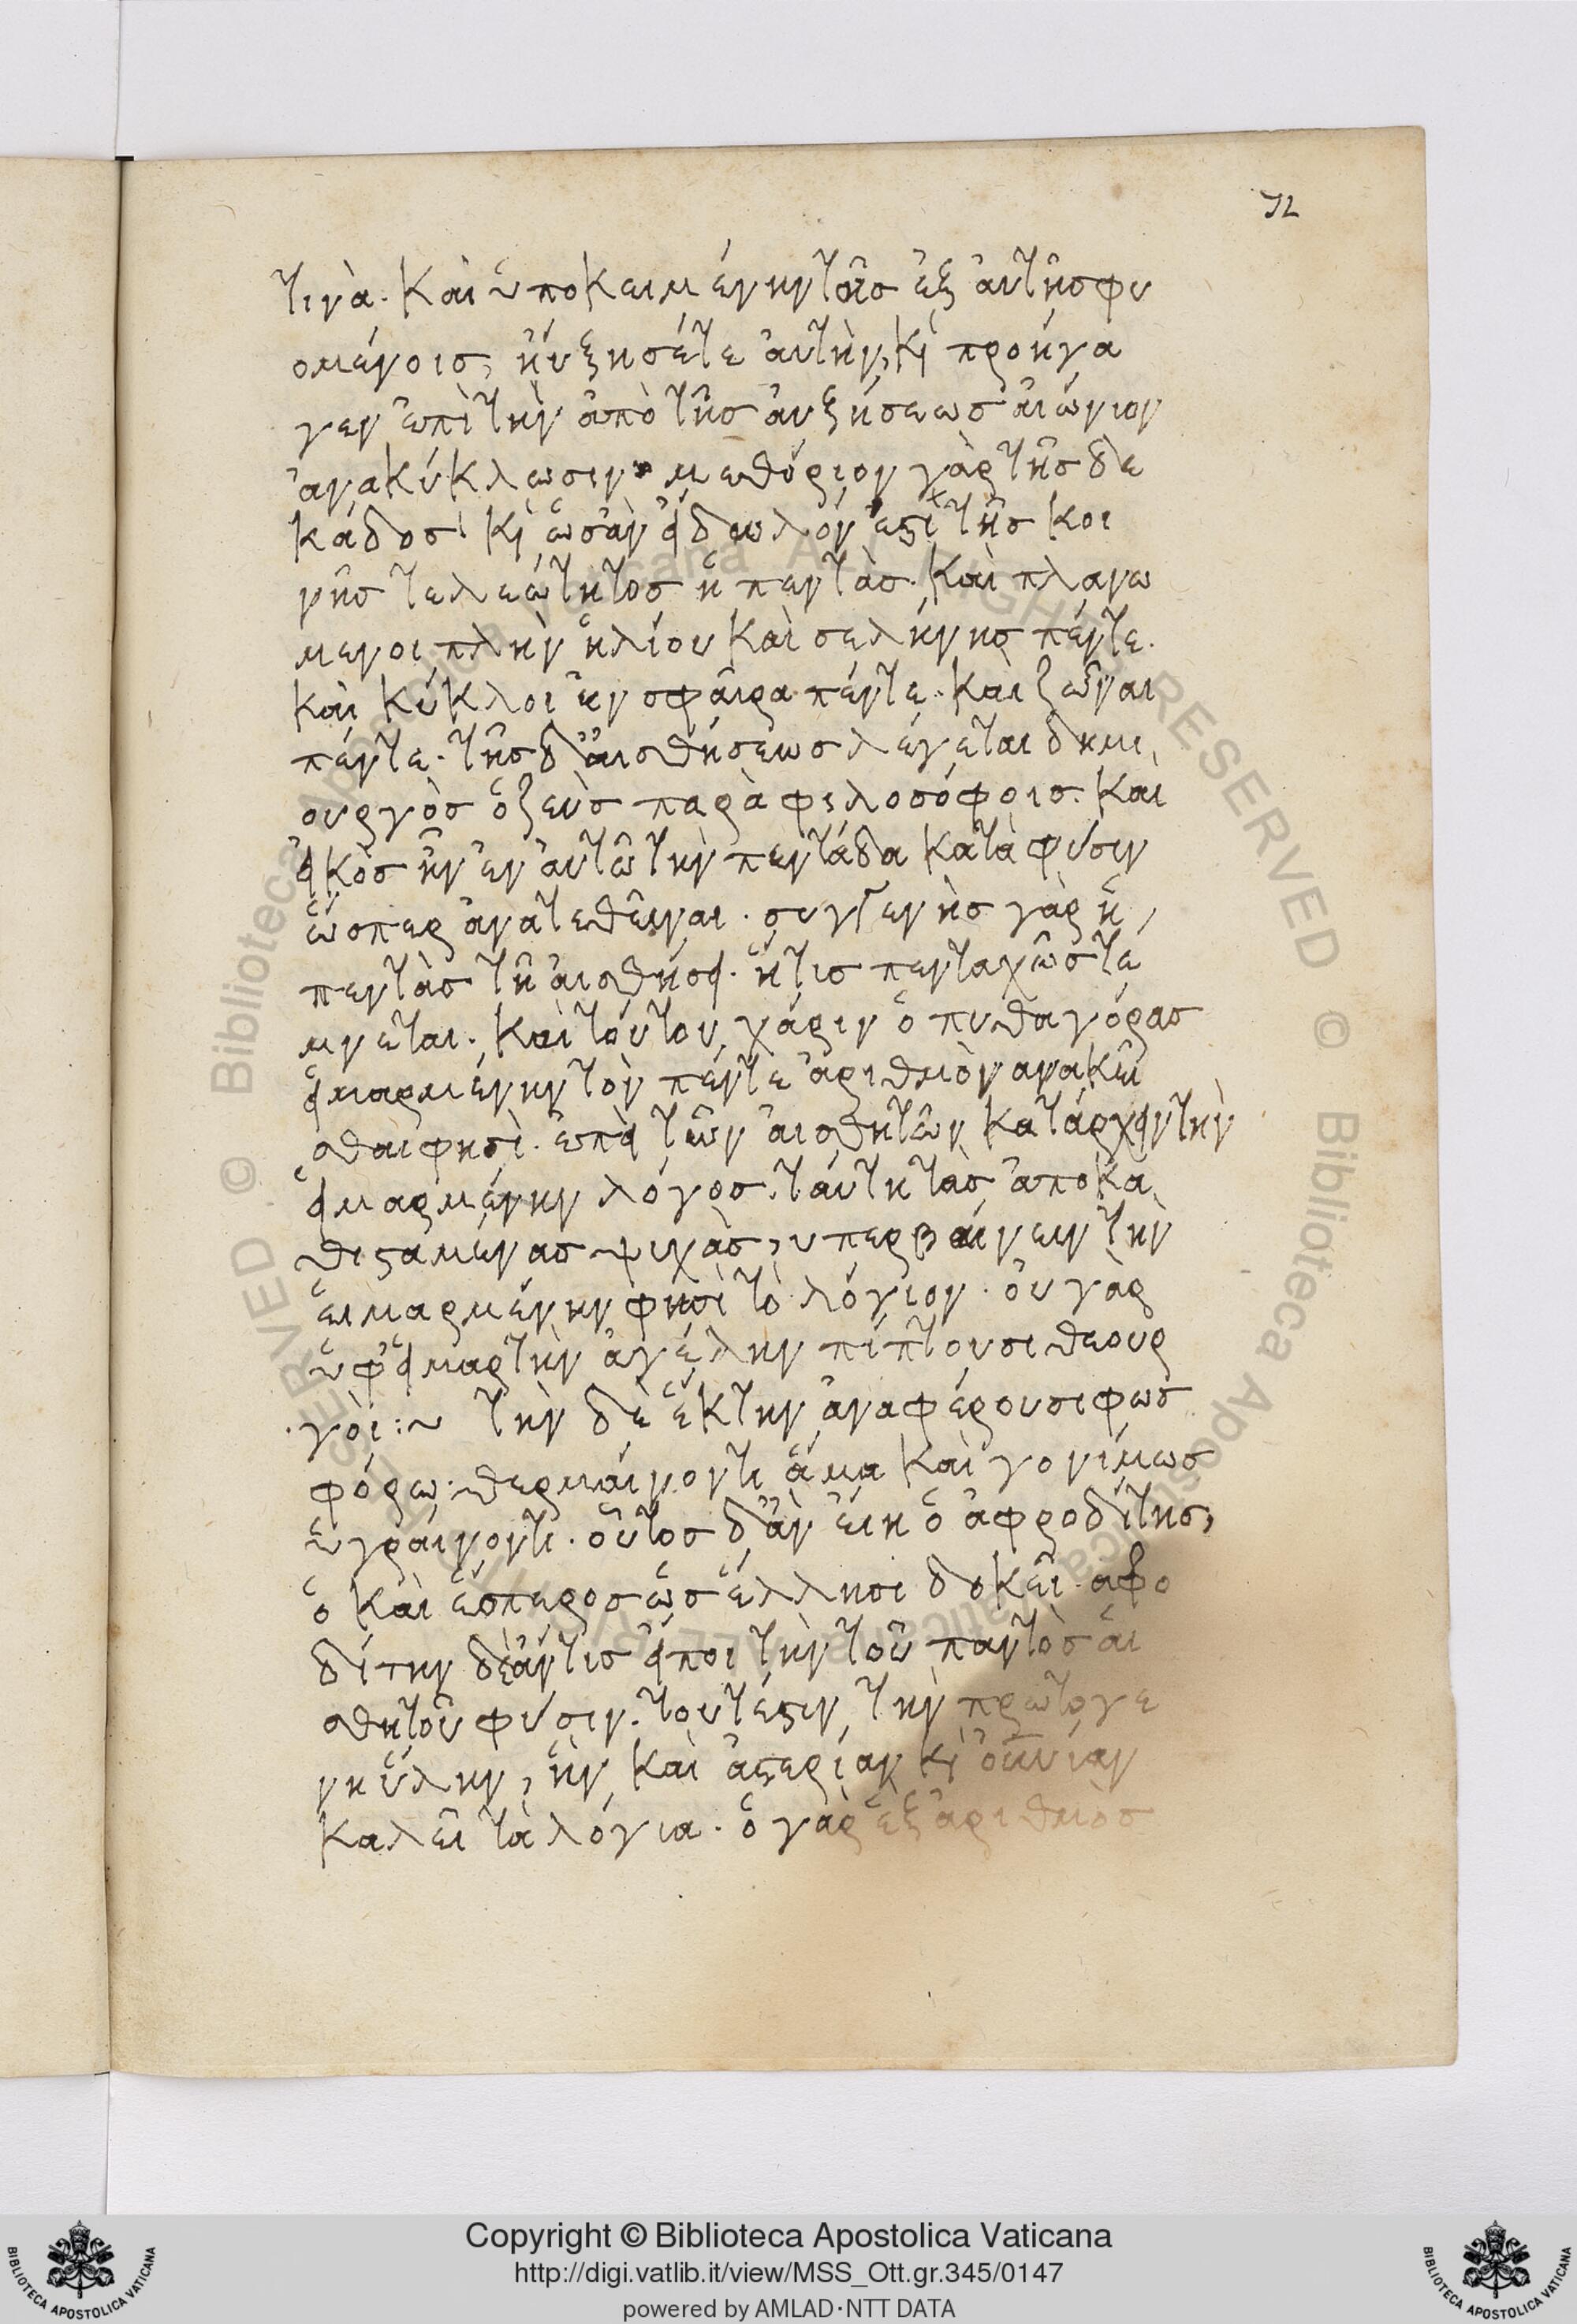 72
τινὰ. καὶ ὑποκειμένην τοῖσ ἐξ ἀυτῆσ φυ
ομένοισ, ἠύξησέτε ἀυτὴν, κὶ προήγα
γεν ἐπὶ τὴν ἀπὸ τῆσ ἀυξήσεωσ ἀιώνιον
ἀνακύκλωσιν· μεθόριον γὰρ τῆσ δε
κάδοσ· κὶ ὡσὰν ἐίδωλόν ἐστὶ τῆσ κοι
νῆσ τελεώτητοσ ἡ πεντὰσ. καὶ πλανω
μενοι πλὴν ἡλίου καὶ σελήνησ πέντε.
καὶ κύκλοι ἐν σφᾶιρα πέντε. καὶ ζῶναι
πέντε. τῆσ δ' ἀισθήσεωσ λέγεται δημι
ουργὸσ ὁ ζεὺσ παρὰ φιλοσόφοισ. καὶ
ἐικὸσ ἦν ἐν ἀυτῶ τὴν πεντάδα κατὰ φύσιν
ὥσπερ ἀνατεθεῖναι. συγγενὴσ γὰρ ἡ
πεντὰσ τῆ ἀισθήσει. ἥτισ πενταχῶσ τέ
μνεται. καὶ τούτου χάριν ὁ πυθαγόρασ
εἱμαρμένην τὸν πέντε ἀριθμὸν ανακεῖ
σθαί φησὶ. ἐπεὶ τῶν ἀισθητῶν κατάρχειν τὴν
εἱμαρμένην λόγοσ. τάυτη τὰσ ἀποκα
θισταμένασ ψυχὰσ, υπερβαίνειν τὴν
εἱμαρμένην φησὶ τὸ λόγιον. ὀυ γὰρ
ὑφ' εἱμαρτὴν ἀγέλην πίπτουσι θεουρ
γοὶ:~ τὴν δὲ ἕκτην ἀναφέρουσι φωσ
φόρω· θερμάινοντι ἅμα καὶ γονίμωσ
ὑγράινοντι. οὗτοσ δ' ἂν ἔιη ὁ ἀφροδίτησ,
ὁ καὶ ἕσπεροσ ὡσ ἕλλησι δοκεῖ. αφο
δίτην δὲ ἄντισ ἔιποι τὴν τοῦ παντὸσ ἀι
σθητοῦ φύσιν. τουτέστιν τὴν πρωτογε
νῆ ὕλην, ἣν καὶ ἀστερίαν κὶ ὀυνίαν
καλεῖ τὰ λόγια. ὁ γὰρ ἓξ ἀριθμὸσ
© Biblioteca Apostolica Vaticana ALL RIGHTS RESERVED
Copyright © Biblioteca Apostolica Vaticana
http://digi.vatlib.it/view/MSS_Ott.gr.345/0147
powered by AMLAD·NTT DATA
BIBLIOTECA APOSTOLICA VATICANA
BIBLIOTECA APOSTOLICA VATICANA